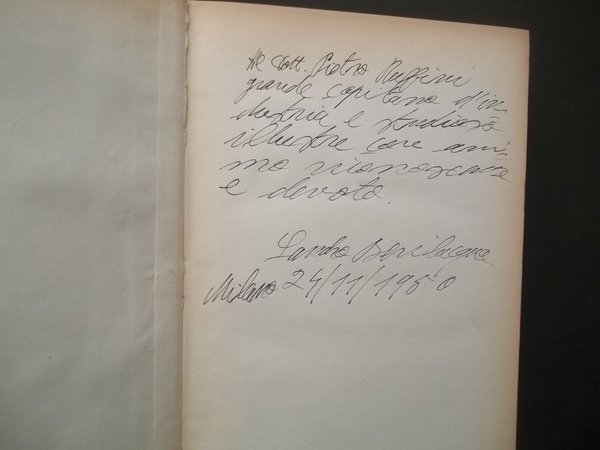 Al Dott. Pietro Ruffini
grande capitano d'in-
dustria e studioso
illustre con ani-
mo riconoscente
e devoto.
Sandro Bevilacqua
Milano 24/11/1950